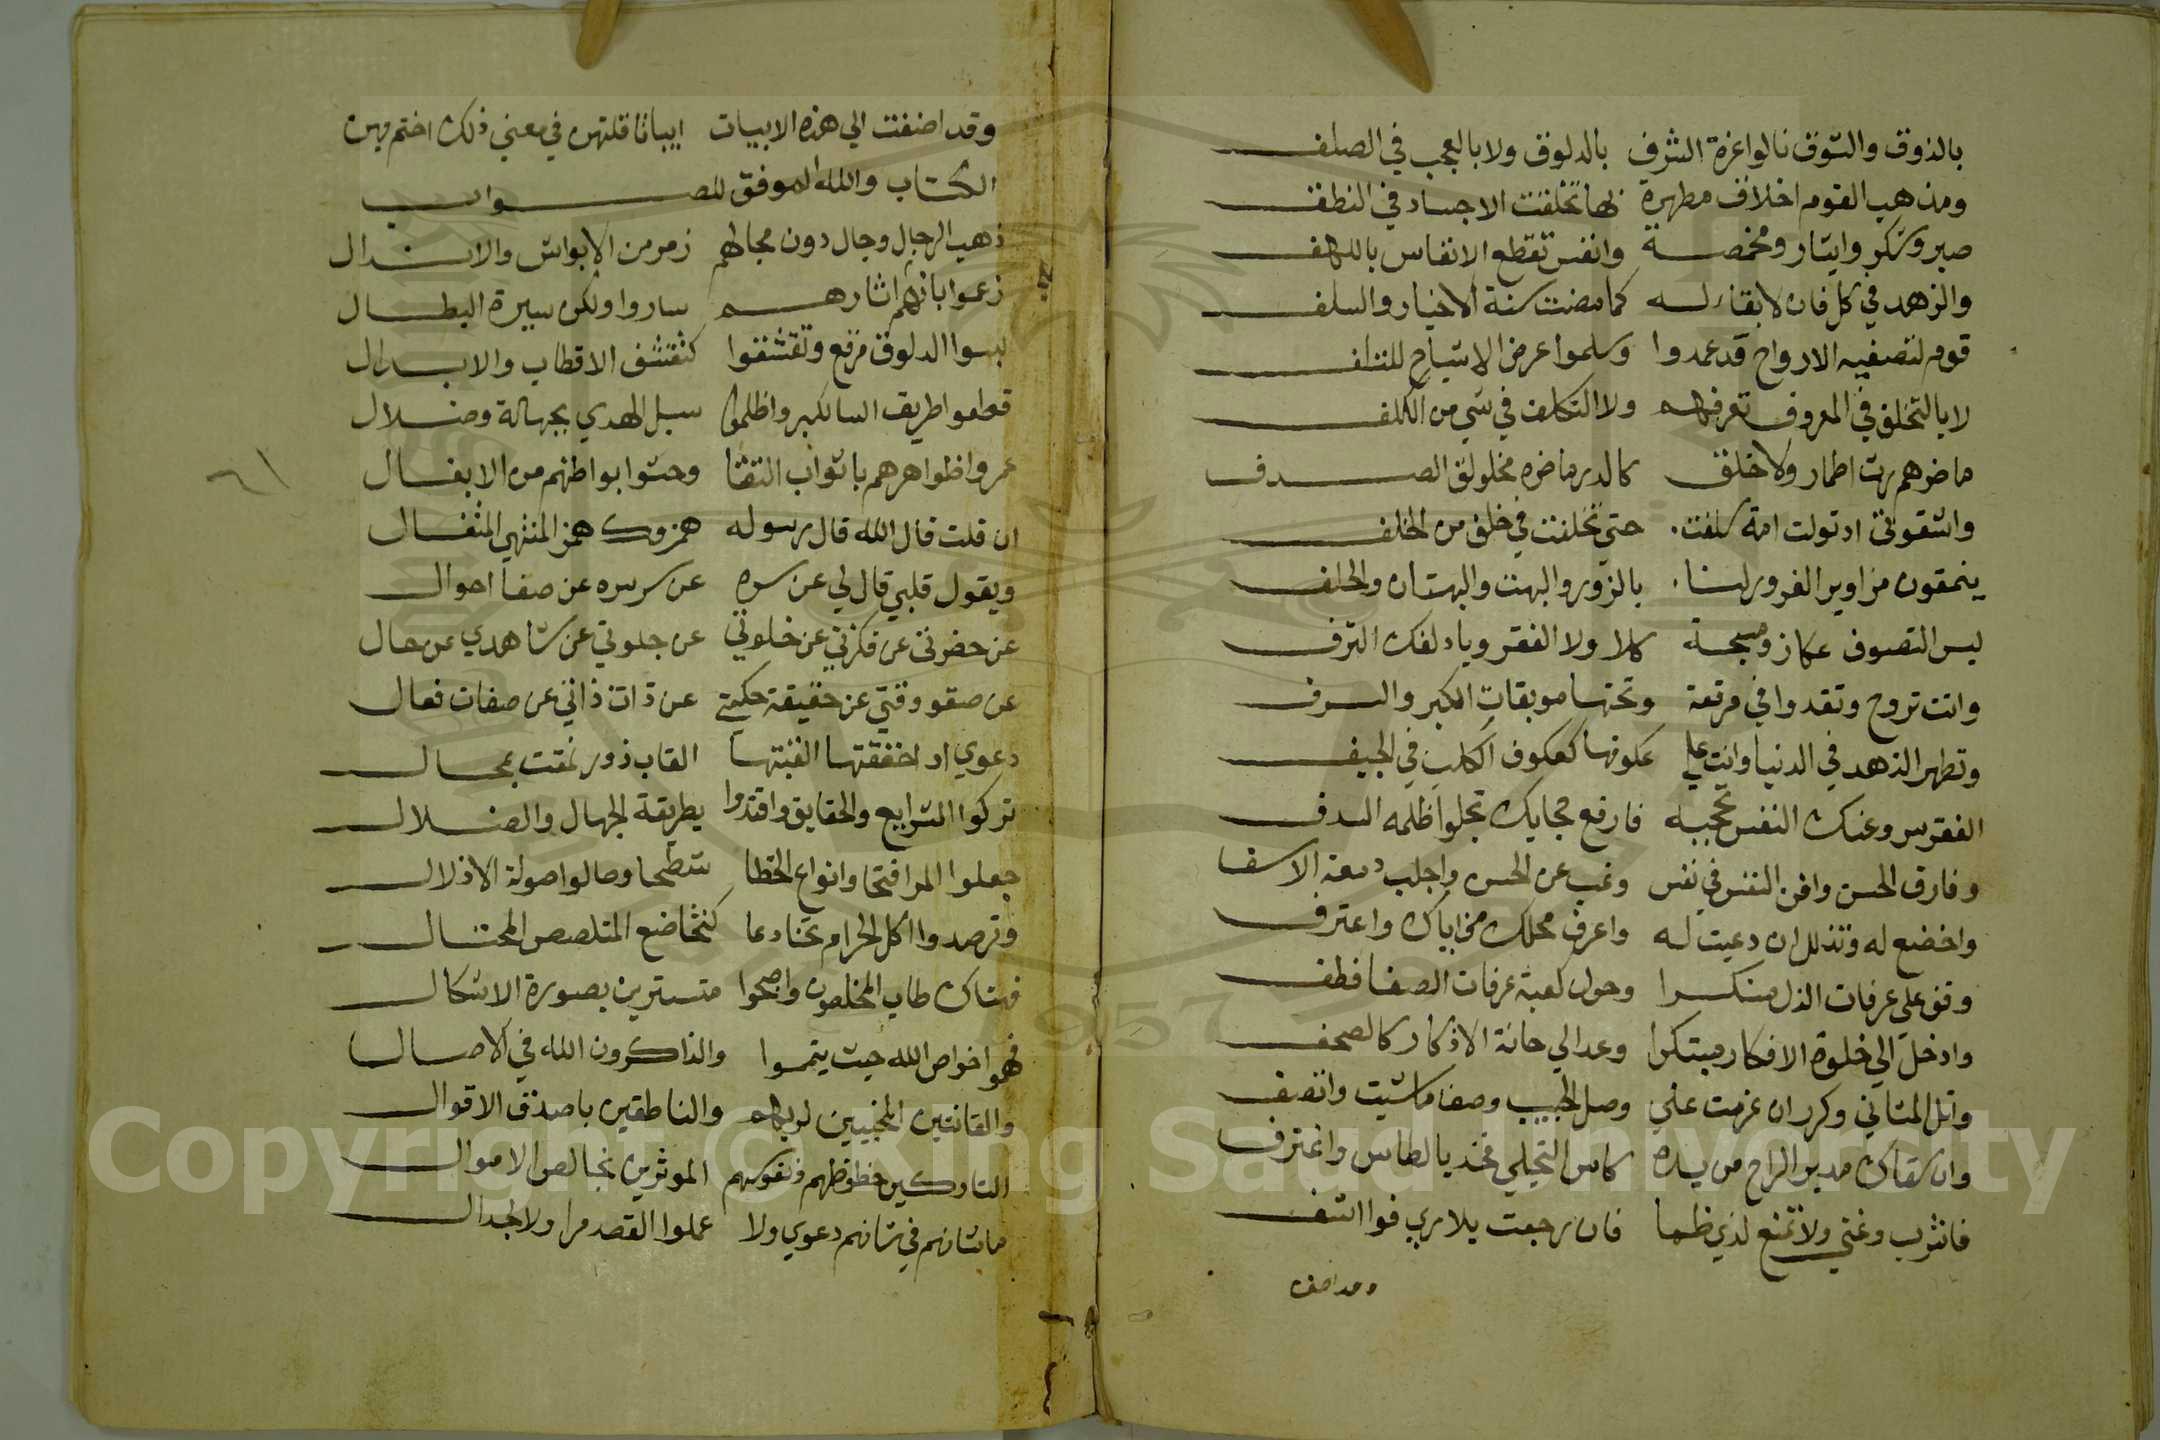 بالذوق والشوق نالوا عزة الشرف بالدلوق ولا بالعجب في الصلف
ومذهب القوم اخلاق مطهرة بها تخلقت الاجساد في النطف
صبر وشكر وايثار ومخمصة وانفس تقطع الانفاس باللهف
والزهد في كل فان لا بقاء له كما مضت سنة الاخيار والسلف
قوم لتصفيه الارواح قد عمدوا وسلموا عرض الاشباح للتلف
لا بالتخلق في المعروف تعرفهم ولا التكلف في شي من الكلف
ما ضرهم رث اطمار ولا خلق كالدر ما ضره مخلولق الصدف
واشقوتي اد تولت امة سلفت حتي تخلفت في خلف من الخلف
ينمقون مزاوير الغرور لنا بالزور والبهت والبهتان والحلف
ليس التصوف عكاز ومسبحة كلا ولا الفقر ويا دلفك الترف
وانت تروح وتغدوا في مرقعة وتحتها موبقات الكبر والسرف
وتظهر الزهد في الدنيا وانت علي عكوفها كعكوف الكلب في الجيف
الفقر سر وعنك النفس تحجبه فارفع حجابك تجلوا ظلمه السدف
وفارق الحس وافن النفس في نفس وغب عن الحس واجلب دمعة الاسفا
واخضع له وتذلل ان دعيت له واعرف محلك من اياك واعترف
وقف علي عرفات الذل منكسرا وحول كعبة عرفات الصفا فطف
وادخل الي خلوة الافكار مبتكرا وعد الي حانة الاذكار كالصحف
واتل المثاني وكرر ان عزمت علي وصل الحبيب وصفا ما شيت واتصف
وان سقاك مدير الراح من يده كاس التجلي فخذ بالطاس واغترف
فاشرب وغني ولا تمنع لذي ظما فان رجعت بلا ري فوا اسف
وقد اضفت
وقد اضفت الي هذه الابيات ابياتا قلتهن في معني ذلك اختم بهن
الكتاب والله الموفق للصواب
ذهب الرجال وجال دون مجالهم زمر من الاوباش والانذال
زعموا بانهم اثارهم ساروا ولكن سيرة البطال
لبسوا الدلوق مرقع وتقشفوا كتقشف الاقطاب والابدال
قطعوا طريق السالكين واظلموا سبل الهدي بجهالة وضلال
عمروا ظواهرهم باثواب التقا وحشوا بواطنهم من الادغال
ان قلت قال الله قال رسوله همزوك همز المنتهي المتغال
ويقول قلبي قال لي عن سره عن سر سره عن صفا احوال
عن حضرتي عن فكرتي عن خلوتي عن جلوتي عن شاهدي عن حال
عن صفو وقتي عن حقيقة حكمتي عن ذات ذاتي عن صفات فعال
دعوي اد احققتها الفيتها القاب زور نمقت بمحال
تركوا الشرايع والحقايق واقتدوا بطريقة الجهال والضلال
جعلوا المرا فتحا وانواع الخطا شطحا وصالوا صولة الاذلال
وترصدوا اكل الحرام تخادعا كتخاضع المتلصص المحتال
فهناك طاب المخلصون واصبحوا متسترين بصورة الاشكال
فهموا خواص الله حيث يتمموا والذاكرون الله في الاصال
والقانتين المخبتين لربهم والناطقين باصدق الاقوال
التاركين حظوظهم ونفوسهم الموثرين بخالص الاموال
ما شانهم في شانهم دعوي ولا عملوا القصد مرا ولا لجدال
٦١